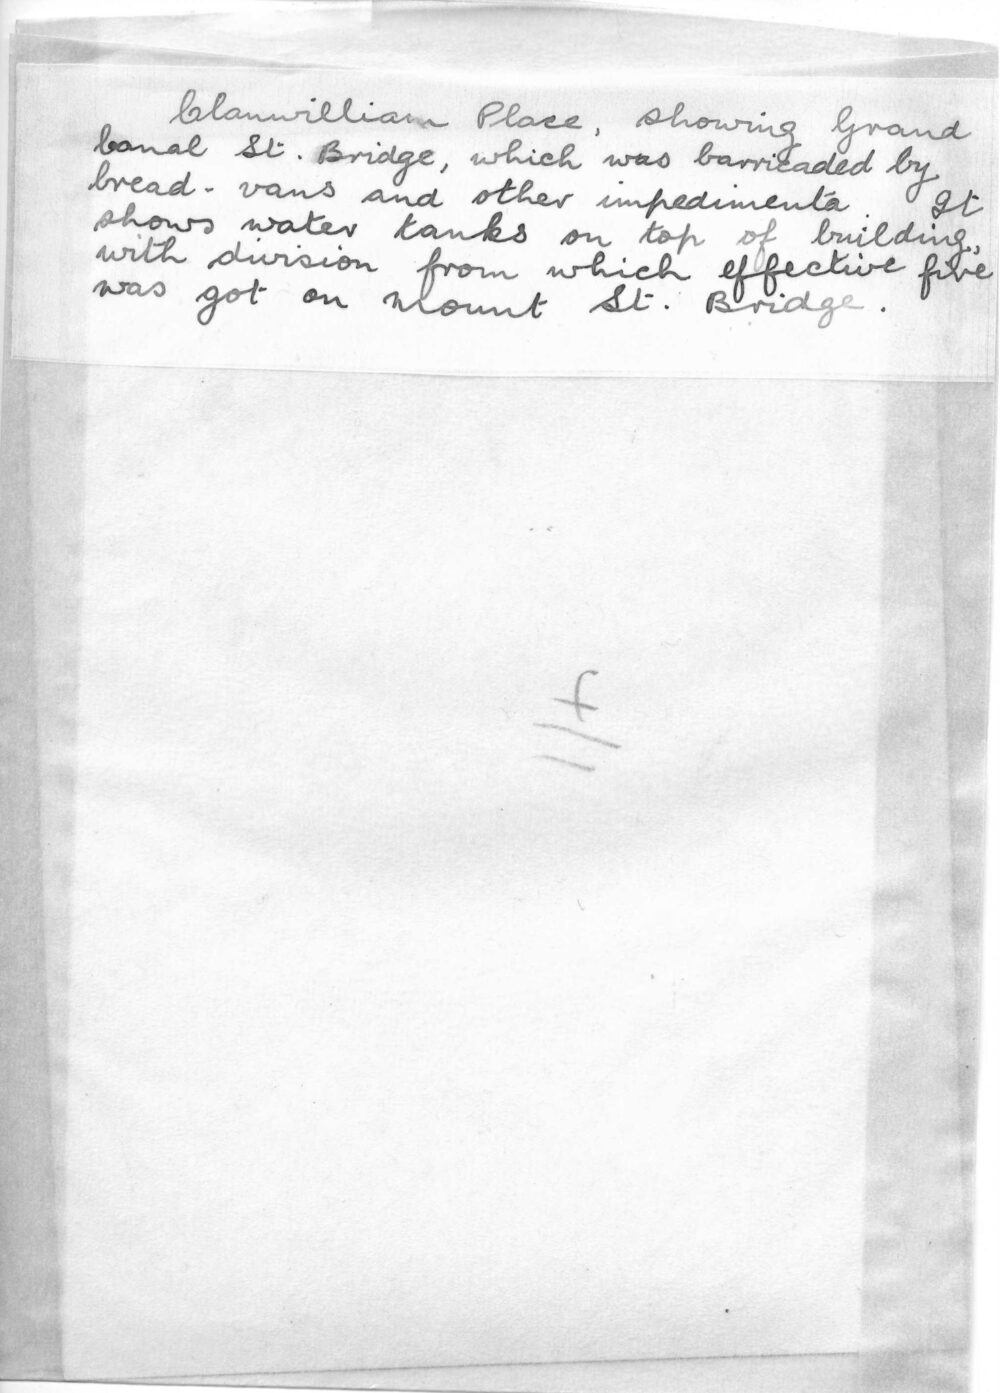 Clanwilliam Place, showing Grand
Canal St. Bridge, which was barricaded by
bread-vans and other impedimenta. It
shows water tanks on top of building,
with division from which effective fire
was got on Mount St. Bridge.